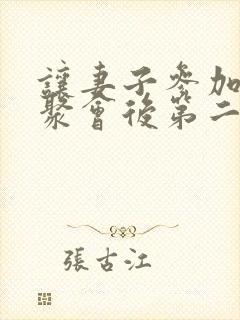 讓妻子參加
聚會後第二
張古江